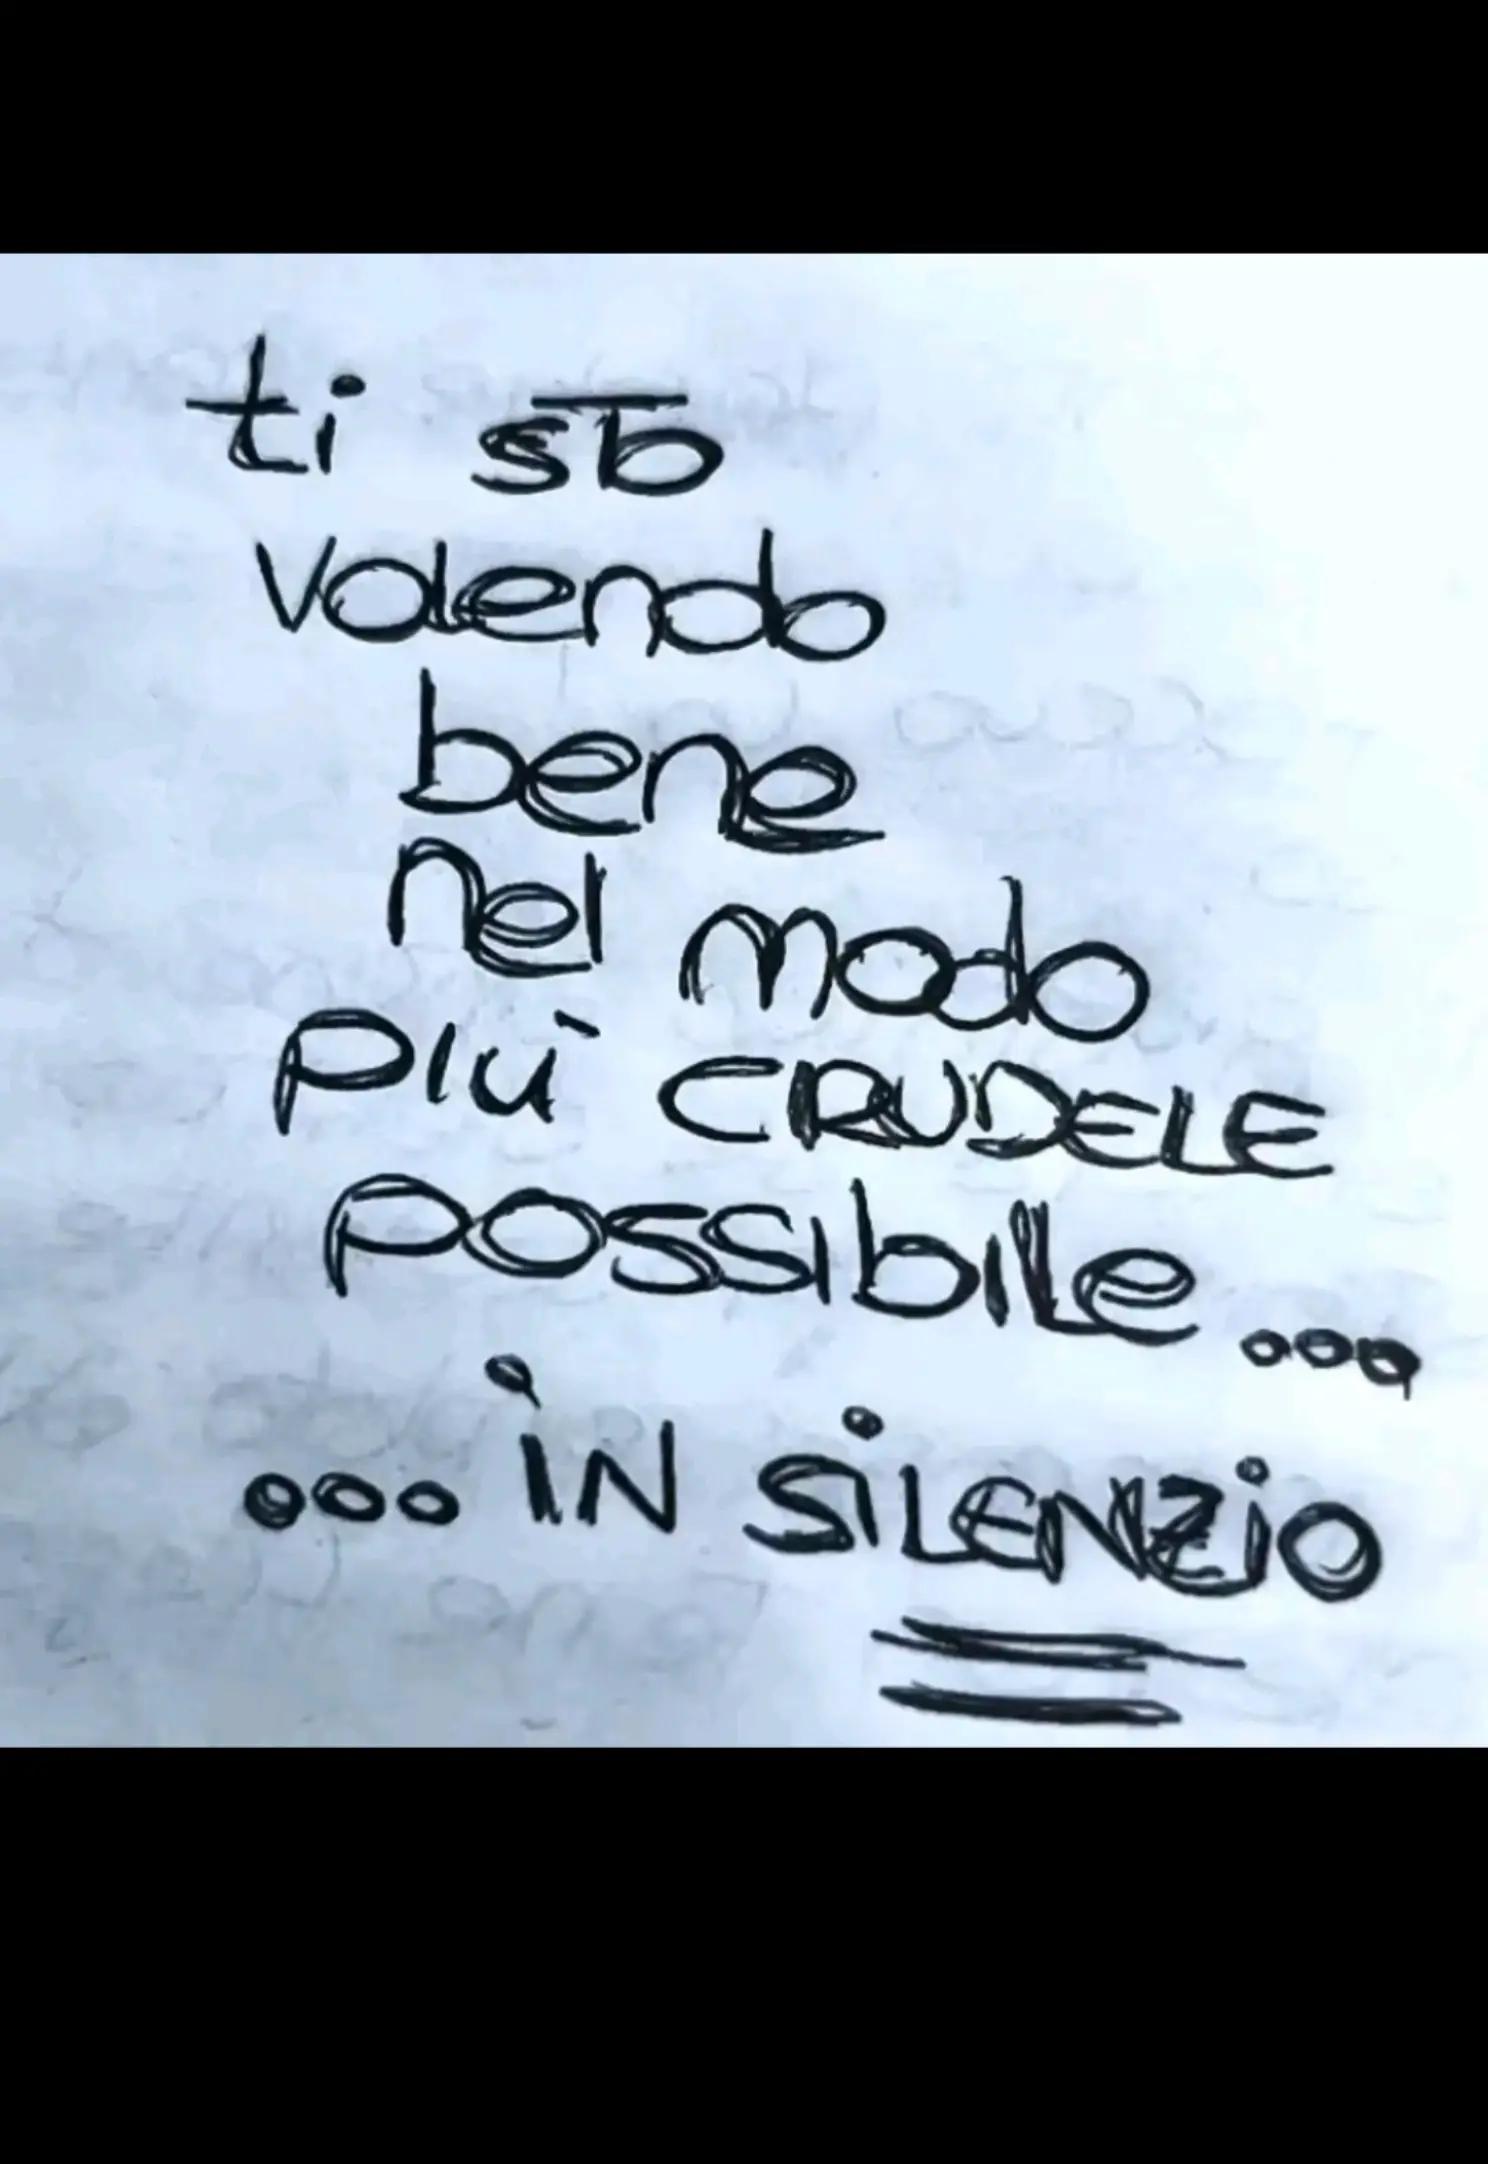 ti sto
volendo
bene
nel modo
più CRUDELE
possibile...
...iN SiLENZiO